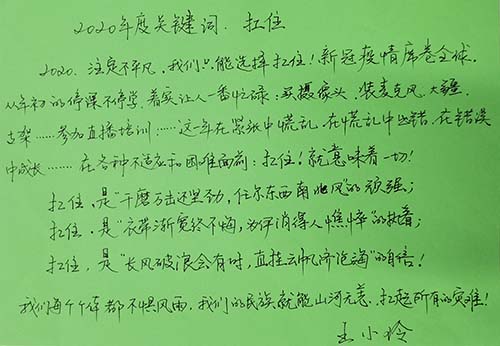 2020年度关键词：扛住
2020，注定不平凡，我们只能选择扛住！新冠疫情席卷全球，
从年初的停课不停学，着实让人一番忙碌：买摄像头、装麦克风、大疆
支架……参加直播培训……这一年在累纸中慌乱，在慌乱中出错，在错误
中成长……在各种不适应和困难面前：扛住！就意味着一切！
扛住，是“千磨万击还坚劲，任尔东西南北风”的顽强；
扛住，是“衣带渐宽终不悔，为伊消得人憔悴”的执着；
扛住，是“长风破浪会有时，直挂云帆济沧海”的自信！
我们每个个体都不惧风雨，我们的民族就能山河无恙，扛起所有的灾难！
王小玲